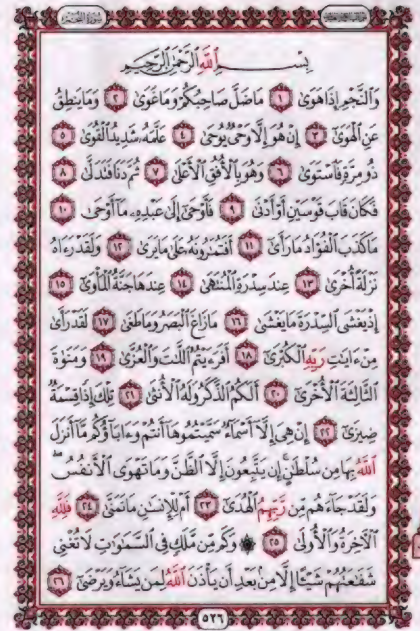 سُورَةُ النَّجْمِ
بِسْمِ اللَّهِ الرَّحْمَٰنِ الرَّحِيمِ
وَالنَّجْمِ إِذَا هَوَىٰ ١ مَا ضَلَّ صَاحِبُكُمْ وَمَا غَوَىٰ ٢ وَمَا يَنطِقُ
عَنِ الْهَوَىٰ ٣ إِنْ هُوَ إِلَّا وَحْيٌ يُوحَىٰ ٤ عَلَّمَهُ شَدِيدُ الْقُوَىٰ ٥
ذُو مِرَّةٍ فَاسْتَوَىٰ ٦ وَهُوَ بِالْأُفُقِ الْأَعْلَىٰ ٧ ثُمَّ دَنَا فَتَدَلَّىٰ ٨
فَكَانَ قَابَ قَوْسَيْنِ أَوْ أَدْنَىٰ ٩ فَأَوْحَىٰ إِلَىٰ عَبْدِهِ مَا أَوْحَىٰ ١٠
مَا كَذَبَ الْفُؤَادُ مَا رَأَىٰ ١١ أَفَتُمَارُونَهُ عَلَىٰ مَا يَرَىٰ ١٢ وَلَقَدْ رَءَاهُ
نَزْلَةً أُخْرَىٰ ١٣ عِندَ سِدْرَةِ الْمُنتَهَىٰ ١٤ عِندَهَا جَنَّةُ الْمَأْوَىٰ ١٥
إِذْ يَغْشَى السِّدْرَةَ مَا يَغْشَىٰ ١٦ مَا زَاغَ الْبَصَرُ وَمَا طَغَىٰ ١٧ لَقَدْ رَأَىٰ
مِنْ ءَايَٰتِ رَبِّهِ الْكُبْرَىٰ ١٨ أَفَرَءَيْتُمُ اللَّٰتَ وَالْعُزَّىٰ ١٩ وَمَنَوٰةَ
الثَّالِثَةَ الْأُخْرَىٰ ٢٠ أَلَكُمُ الذَّكَرُ وَلَهُ الْأُنثَىٰ ٢١ تِلْكَ إِذًا قِسْمَةٌ
ضِيزَىٰ ٢٢ إِنْ هِيَ إِلَّا أَسْمَاءٌ سَمَّيْتُمُوهَا أَنتُمْ وَءَابَاؤُكُم مَّا أَنزَلَ
اللَّهُ بِهَا مِن سُلْطَٰنٍ إِن يَتَّبِعُونَ إِلَّا الظَّنَّ وَمَا تَهْوَى الْأَنفُسُ
وَلَقَدْ جَاءَهُم مِّن رَّبِّهِمُ الْهُدَىٰ ٢٣ أَمْ لِلْإِنسَٰنِ مَا تَمَنَّىٰ ٢٤ فَلِلَّهِ
الْآخِرَةُ وَالْأُولَىٰ ٢٥ ۞ وَكَم مِّن مَّلَكٍ فِي السَّمَٰوَٰتِ لَا تُغْنِي
شَفَٰعَتُهُمْ شَيْئًا إِلَّا مِن بَعْدِ أَن يَأْذَنَ اللَّهُ لِمَن يَشَاءُ وَيَرْضَىٰ ٢٦
٥٢٦